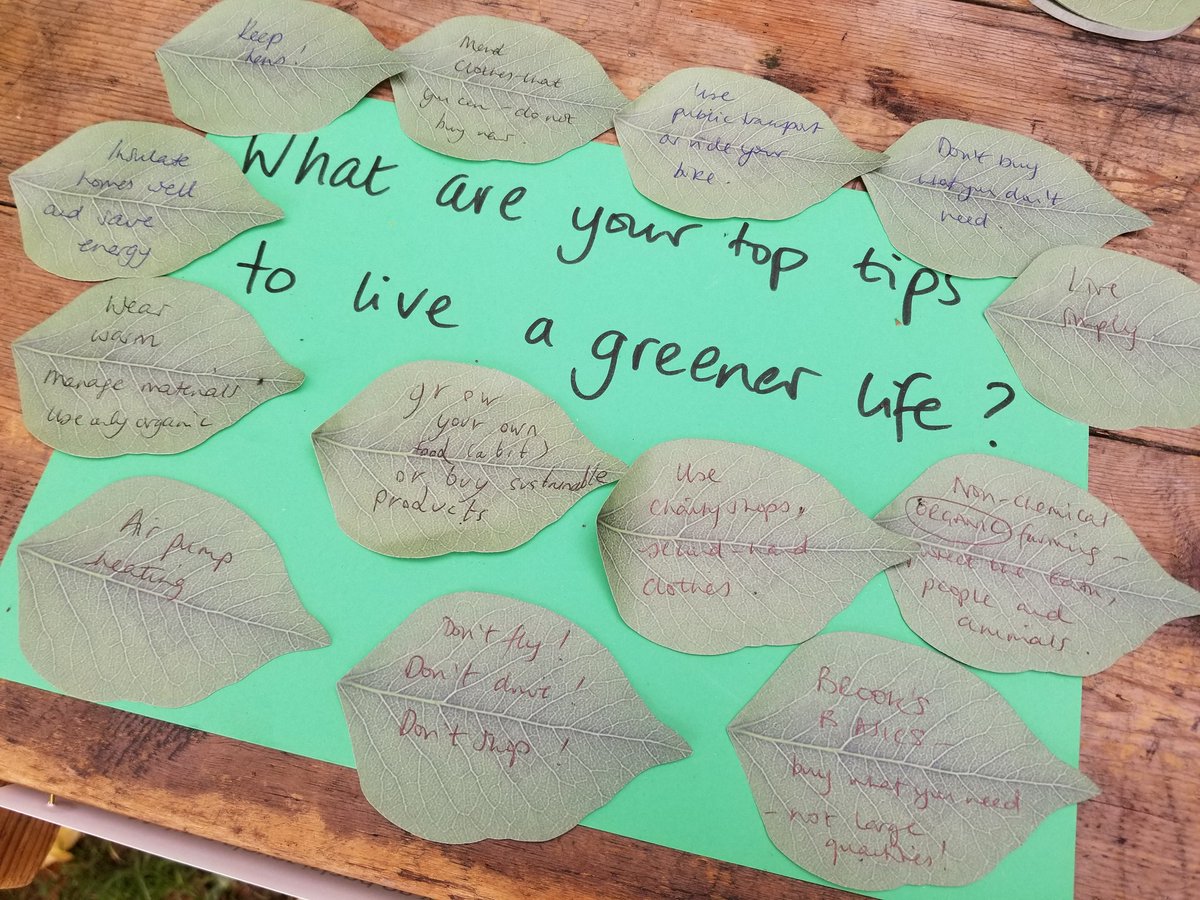 Keep
hens!
Mend
clothes that
you can - do not
buy new.
Use
public transport
or ride your
bike.
Don't buy
what you don't
need.
Insulate
homes well
and save
energy
What are your top tips
to live a greener life?
Live
simply
Wear
warm
manage materials
use only organic
grow
your own
food (a bit)
or buy sustainable
products
Use
charity shops,
second-hand
clothes.
Non-chemical
ORGANIC farming -
the Earth,
people and
animals
Air pump
heating
Don't fly!
Don't drive!
Don't shop!
BROOK'S
BASICS -
buy what you need
- not large
quantities!